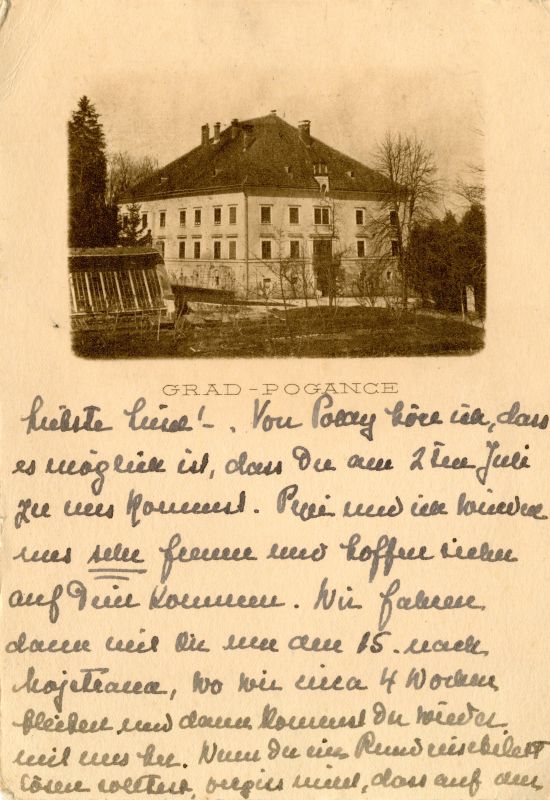 GRAD-POGANCE
Liebste Lina! - Von Polay höre ich, dass
es möglich ist, dass Du am 2ten Juli
zu uns kommst. und ich würden
uns sehr freuen und hoffen sicher
auf Dein Kommen. Wir fahren
dann mit Dir um den 15. nach
Mojstrana, wo wir circa 4 Wochen
bleiben und dann kommst Du wieder
mit uns her. Wenn Du ein Rundreisebillett
lösen solltest, vergiss nicht, dass auf dem